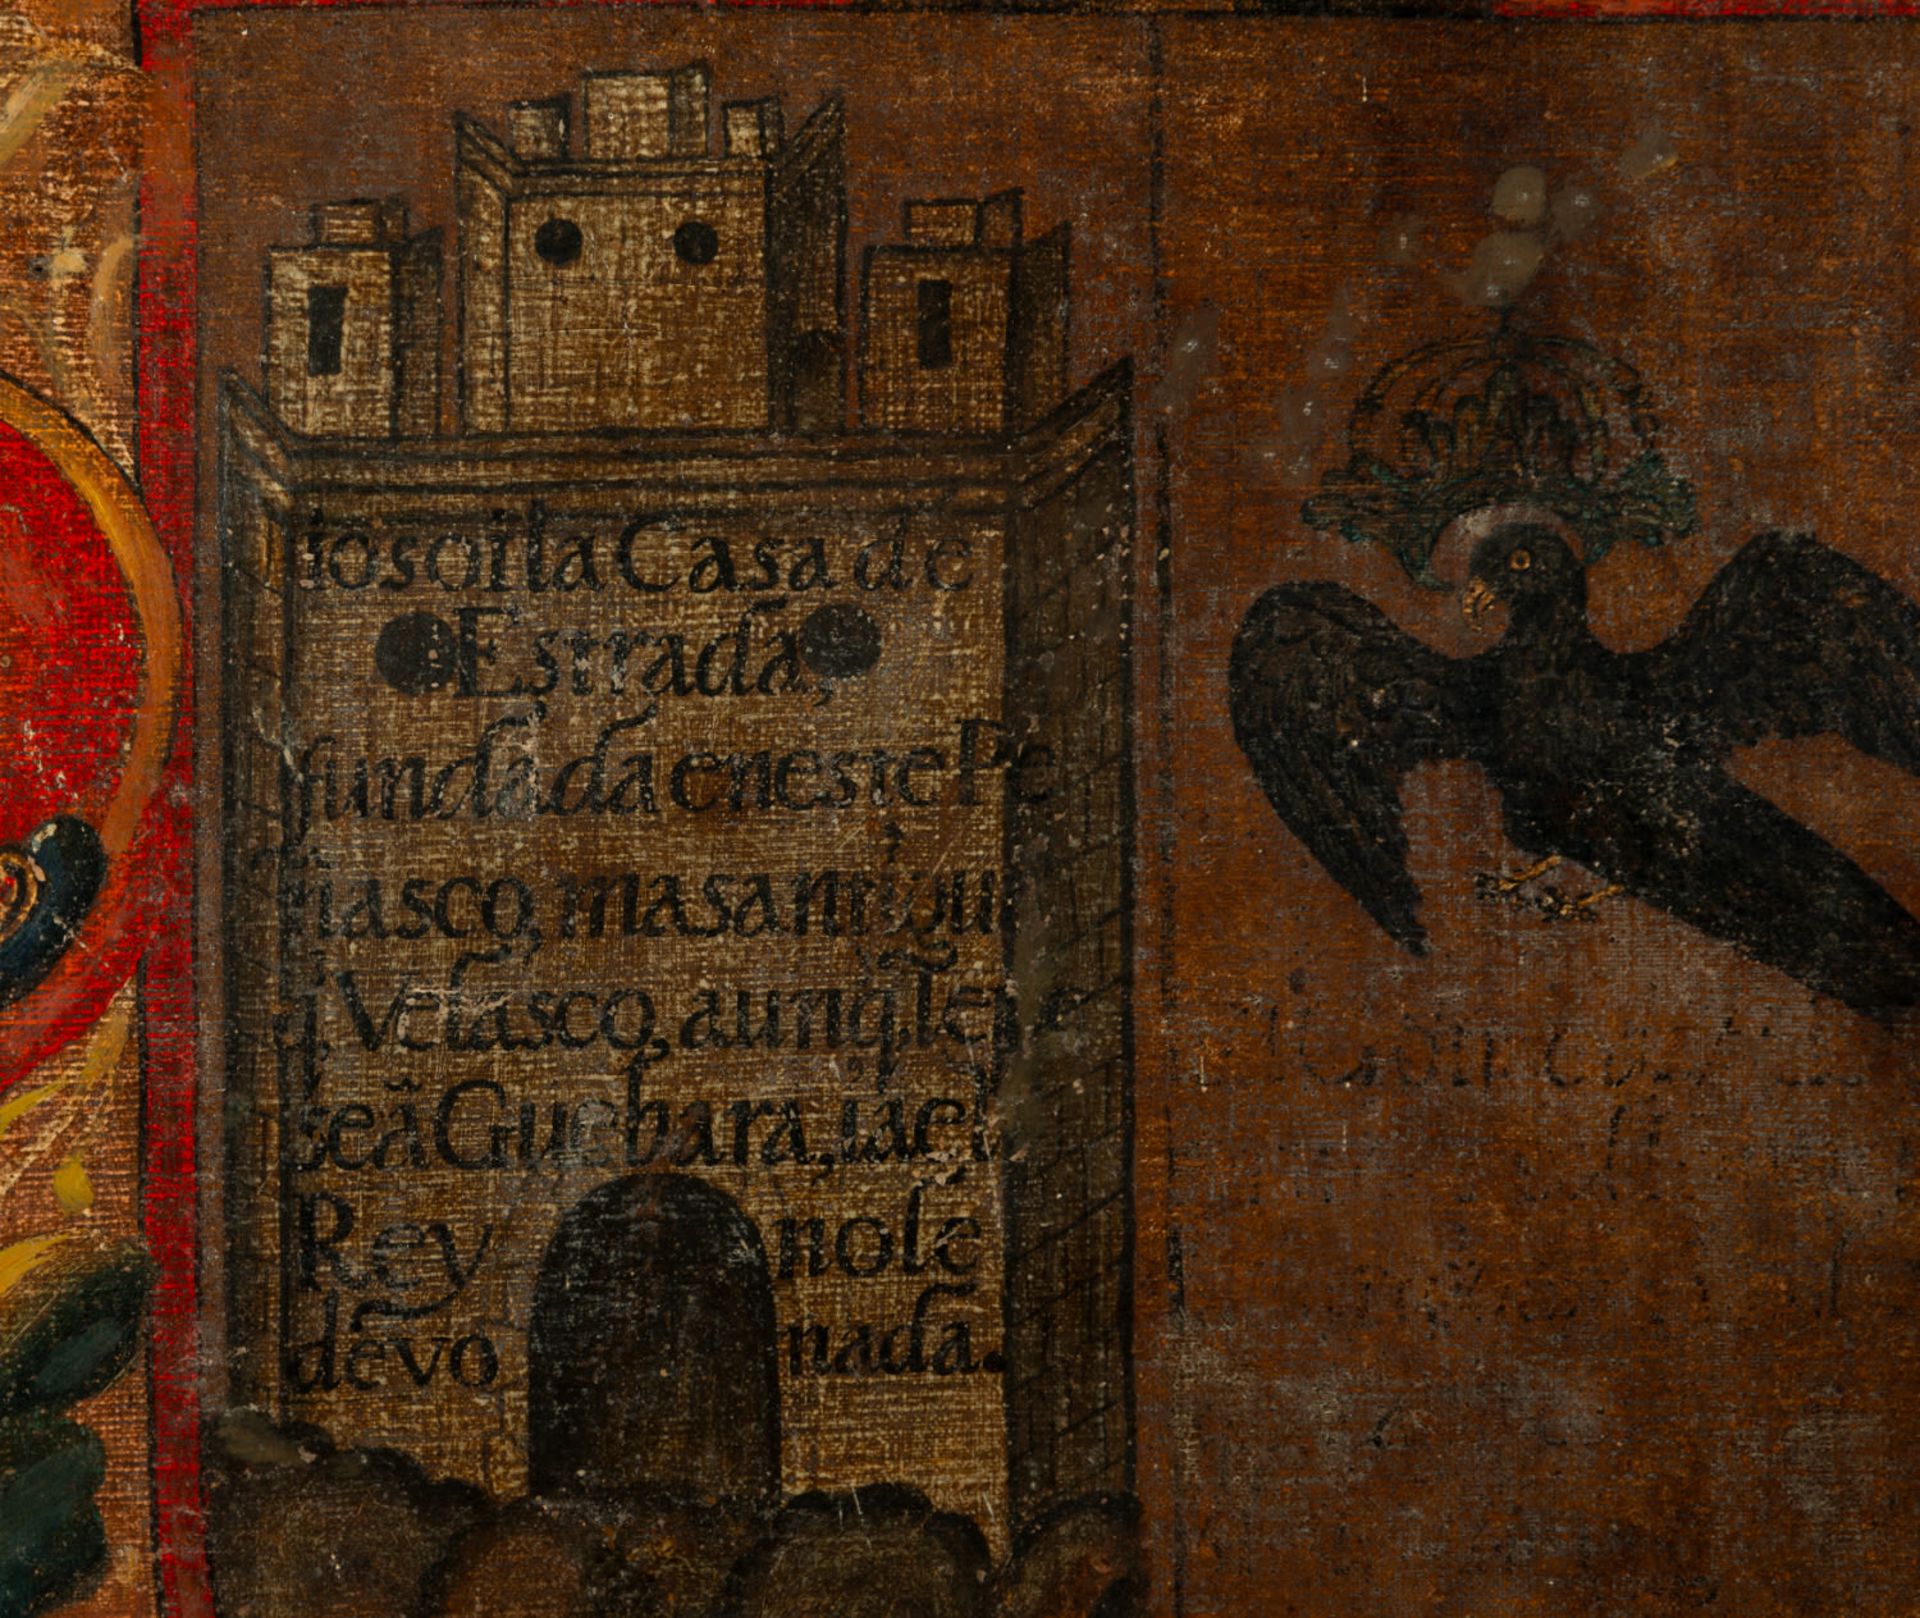 io soi la Casa de
Estrada,
fundada en este Pe
ñasco, mas antigua
q̃, Velasco, aunq̃, le pe
seã Guebara, i ael
Rey nole
dẽvo nada.